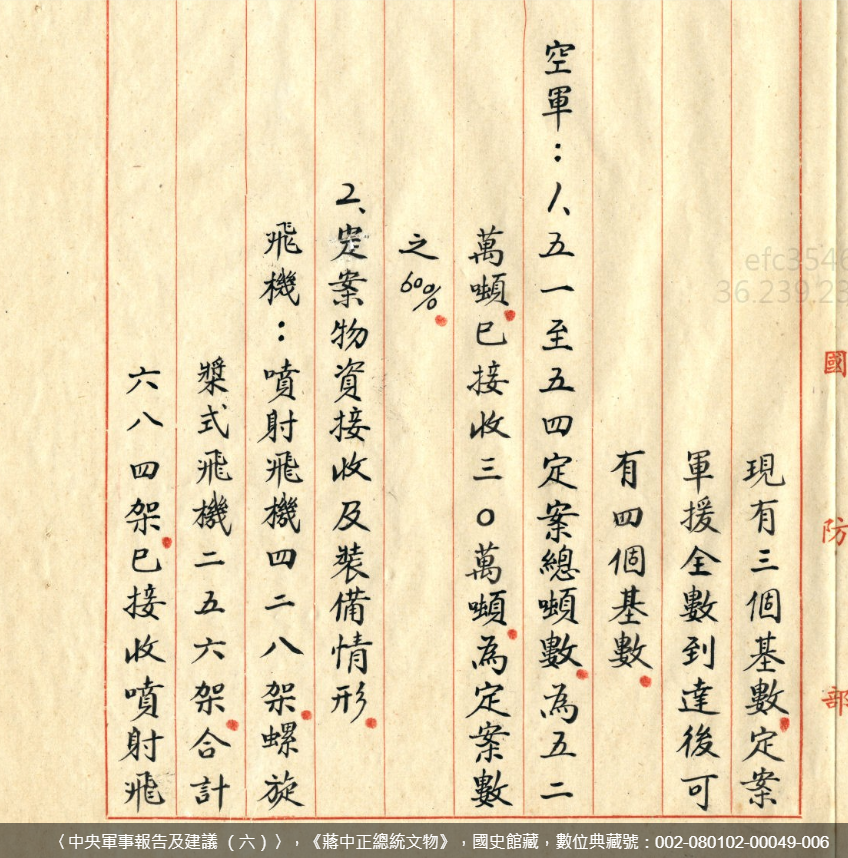 國防部
現有三個基數定案
軍援全數到達後可
有四個基數
空軍：1、五一至五四定案總噸數為五二
萬噸已接收三〇萬噸為定案數
之60%
2、定案物資接收及裝備情形
飛機：噴射飛機四二八架螺旋
槳式飛機二五六架合計
六八四架已接收噴射飛
efc3546
36.239.23
〈中央軍事報告及建議（六）〉，《蔣中正總統文物》，國史館藏，數位典藏號：002-080102-00049-006